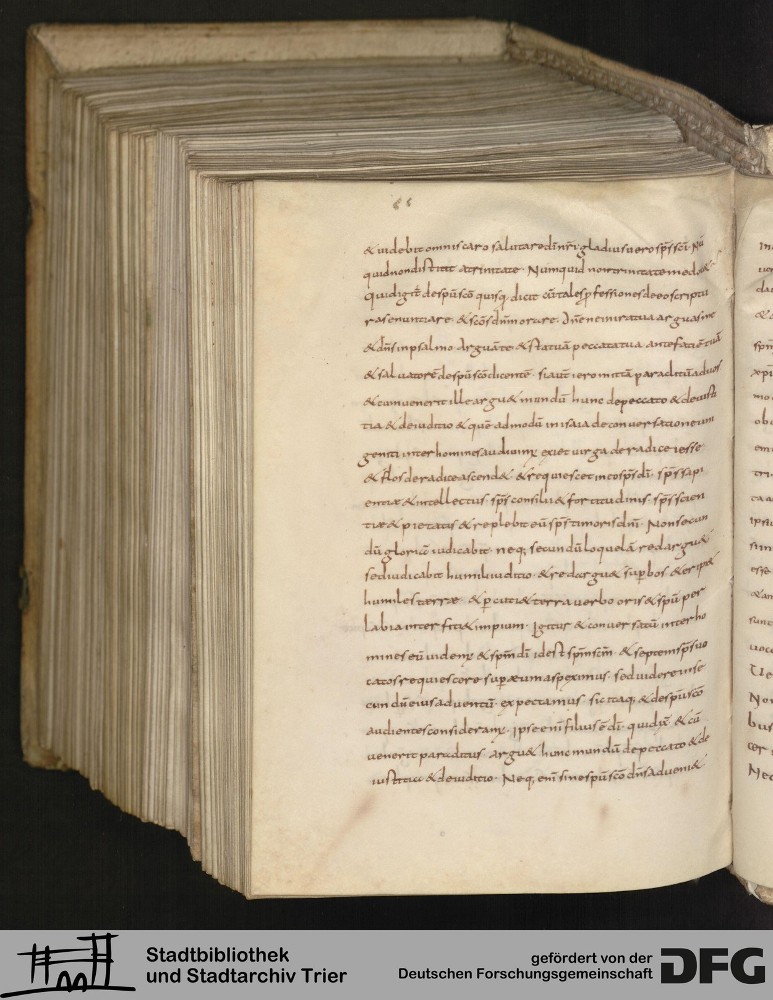 & uidebit omnis caro salutare dīnr̄i gladius uero sp̄s sc̄i. Nū
quid non distitit atrinitate. Numquid non trinitate
qui dig̅t de sp̄u sc̄o quisq; dicit cū tales ꝓfessiones de eo scriptu
ras enuntiare. & sc̄os dn̄m orare. Dn̄e ne in ira tua arguas me
& dn̄s in psalmo. Arguā te & statuā peccata tua ante faciē tuā
& saluatorē de sp̄u sc̄o dicentē. si autē iero mittā paraclitū ad uos
& cum uenerit ille argu& mundū hunc de peccato & de iusti
tia & de iuditio & quē admodū in isaia de conuersatione eium
genti inter homines audiuimꝰ exiet uirga de radice iesse
& flos de radice ascend& . & requiescet in eo sp̄s dī . sp̄s sapi
entiæ & intellectus . sp̄s consilii & fortitudinis . sp̄s scien
tiæ & pietatis & replebit eū sp̄s timoris dn̄i . Non secun
dū gloriā iudicabit neq; secundū loquelā redargu&
sed iudicabit humili iuditio . & redargu& suꝑbos . & eripi&
humiles terræ . & ꝑcuti& terra uerbo oris & sp̄u per
labia interfici& impium . Igitur & conuersatū inter ho
mines eū uidemꝰ & sp̄m dī id est sp̄m sc̄m . & septem sp̄s uo
catos requiescere suꝑ eum aspeximus . sed uidere in se
cundū eius aduentū . expectamus . sic itaq; & de sp̄u sc̄o
audientes consideramꝰ . ipse eni filius ē dī . qui dix& . & cū
uenerit paraclitus . argu& hunc mundū de peccato & de
iustitia & de iuditio . Neq; eni sine sp̄u sc̄o dn̄s adueni&
Stadtbibliothek
und Stadtarchiv Trier
gefördert von der
Deutschen Forschungsgemeinschaft
DFG